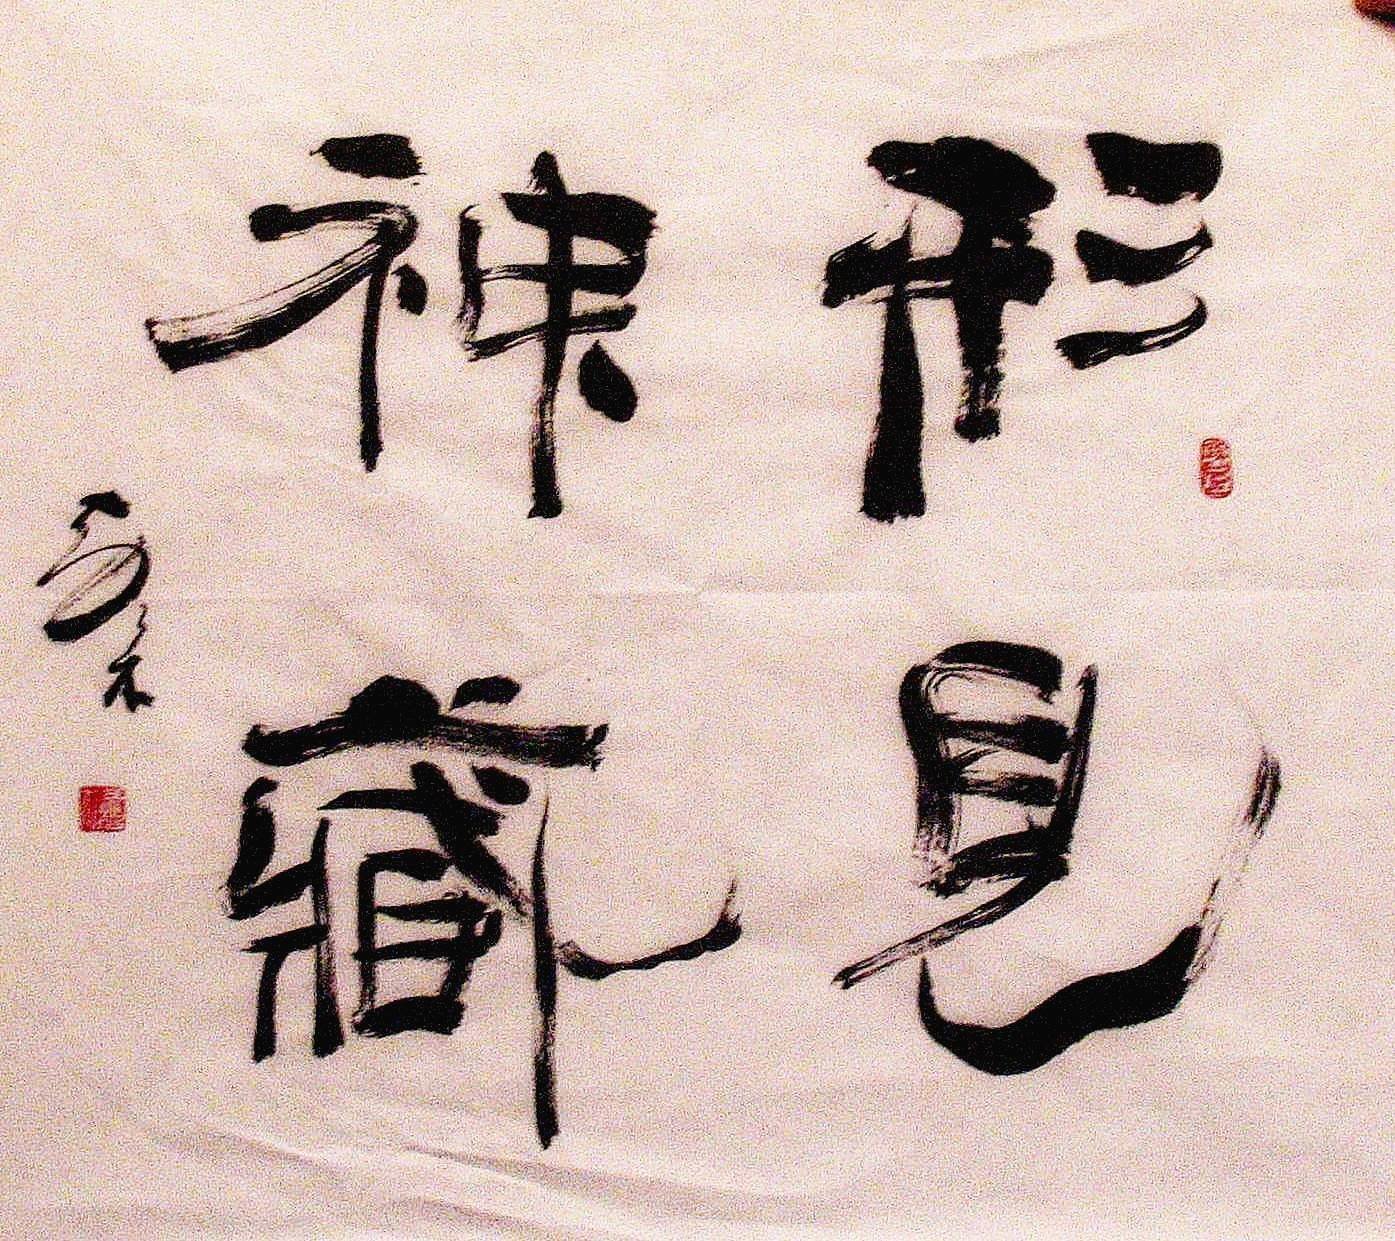 形見
神藏